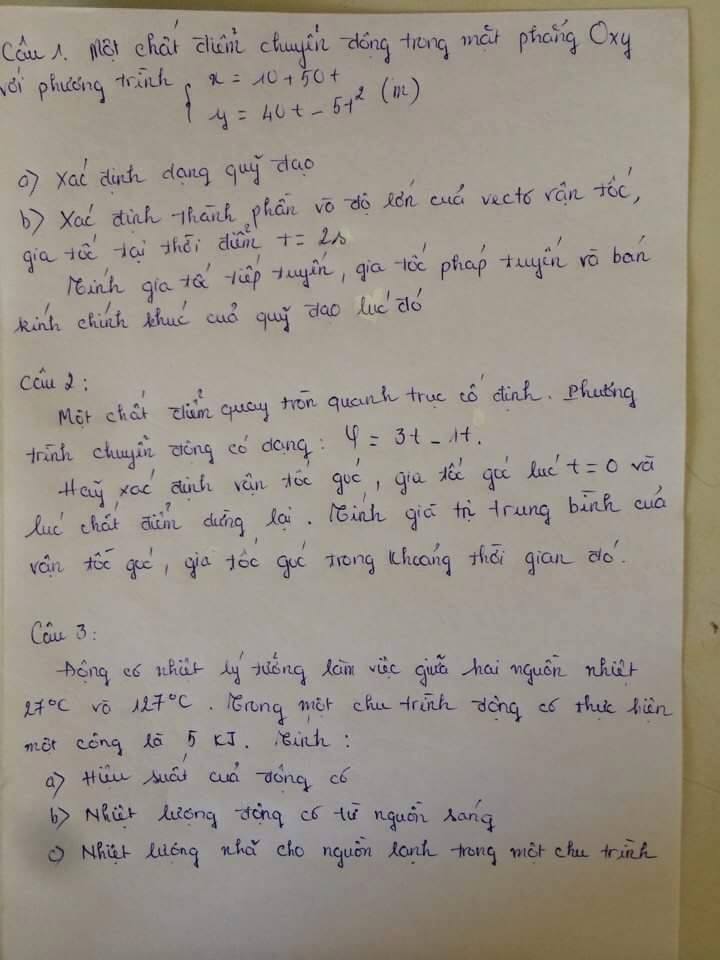 Câu 1. Một chất điểm chuyển động trong mặt phẳng Oxy
với phương trình { x = 10 + 50t
y = 40t - 5t² (m)
a) Xác định dạng quỹ đạo
b) Xác định thành phần và độ lớn của vectơ vận tốc,
gia tốc tại thời điểm t = 2s
Tính gia tốc tiếp tuyến, gia tốc pháp tuyến và bán
kính chính khúc của quỹ đạo lúc đó
Câu 2:
Một chất điểm quay tròn quanh trục cố định. Phương
trình chuyển động có dạng: φ = 3t - 1t.
Hãy xác định vận tốc góc, gia tốc góc lúc t = 0 và
lúc chất điểm dừng lại. Tính giá trị trung bình của
vận tốc góc, gia tốc góc trong khoảng thời gian đó.
Câu 3:
Động cơ nhiệt lý tưởng làm việc giữa hai nguồn nhiệt
27°C và 127°C. Trong một chu trình động cơ thực hiện
một công là 5 KJ. Tính:
a) Hiệu suất của động cơ
b) Nhiệt lượng động cơ từ nguồn sáng
c) Nhiệt lượng nhả cho nguồn lạnh trong một chu trình